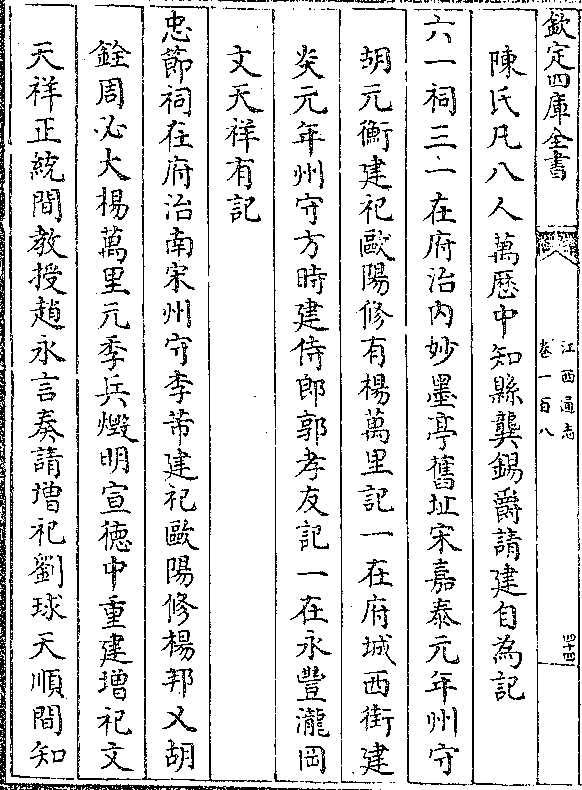 欽定四庫全書
江西通志
卷一百八
四十四
陳氏凡八人萬歷中知縣龔錫爵請建自為記
六一祠三一在府治内妙墨亭舊址宋嘉泰元年州守
胡元衡建祀歐陽修有楊萬里記一在府城西街建
炎元年州守方時建侍郎郭孝友記一在永豐瀧岡
文天祥有記
忠節祠在府治南宋州守李芾建祀歐陽修楊邦乂胡
銓周必大楊萬里元季兵燬明宣德中重建增祀文
天祥正統間教授趙永言奏請增祀劉球天順間知